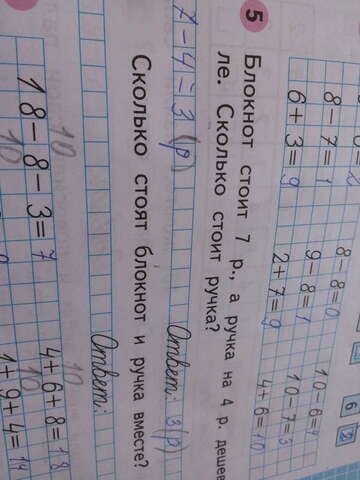 6 2
8 - 7 = 1 8 - 8 = 0 10 - 6 = 4
6 + 3 = 9 9 - 8 = 1 10 - 7 = 3
2 + 7 = 9 4 + 6 = 10
5 Блокнот стоит 7 р., а ручка на 4 р. дешев
ле. Сколько стоит ручка?
7 - 4 = 3 (р) Ответ: 3 (р)
Сколько стоят блокнот и ручка вместе?
Ответ:
10 10
18 - 8 - 3 = 7 4 + 6 + 8 = 18
10 10
1 + 9 + 4 = 14